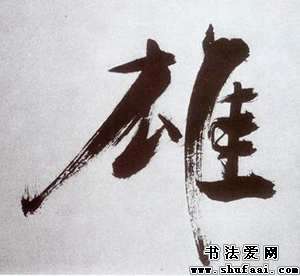 雄
书法爱网
www.shufaai.com